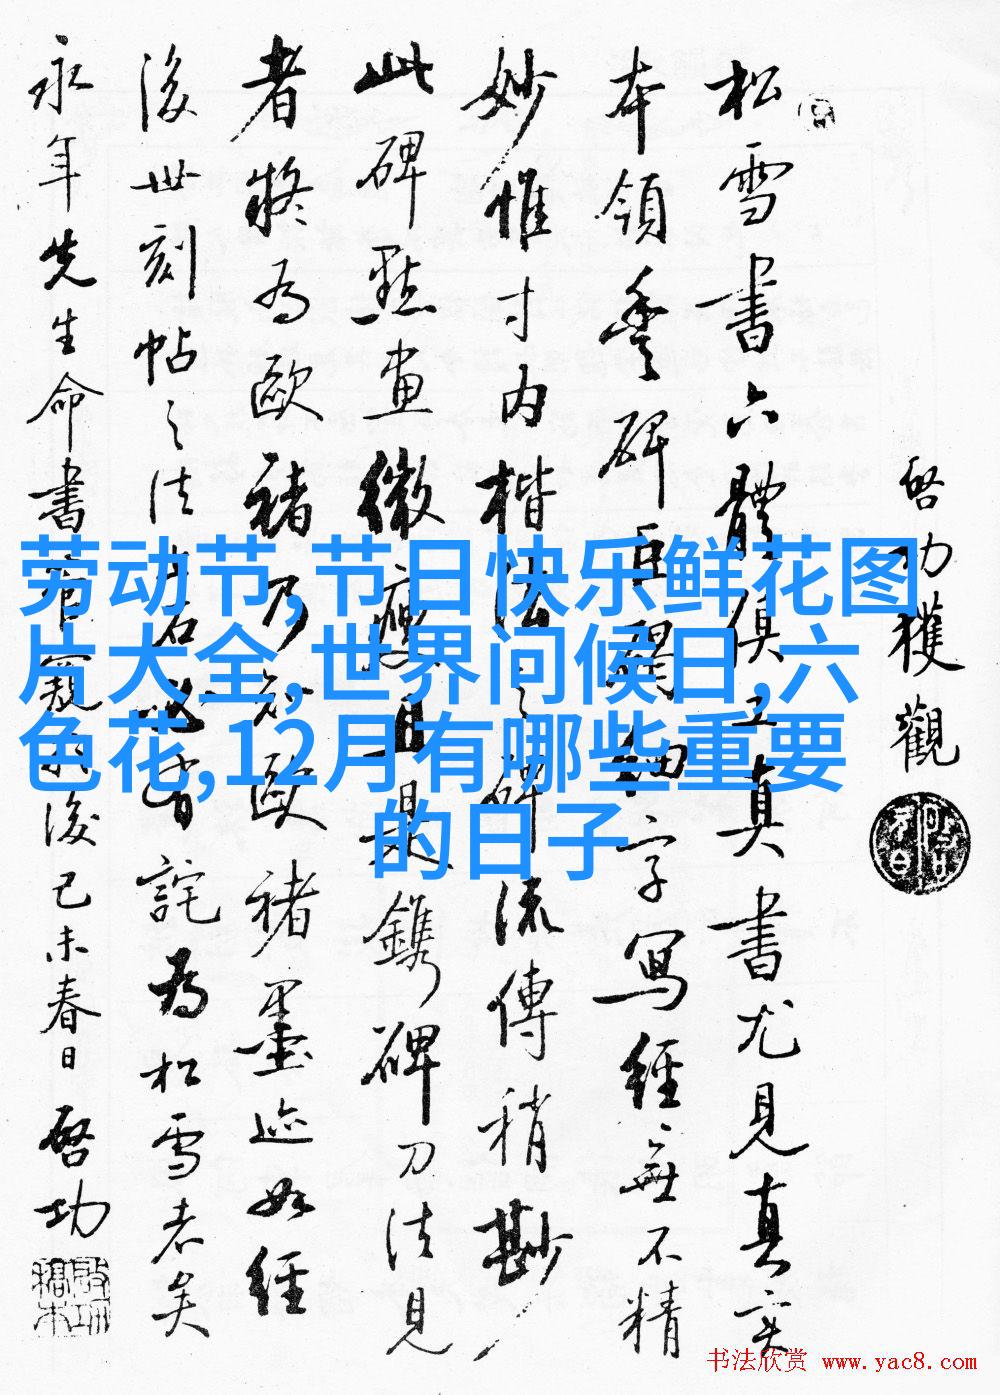 劳动节,节日快乐鲜花图
片大全,世界问候日,六
色花,12月有哪些重要
的日子
啓功獲觀
松雪書六體俱工真書尤見真實
本領豐碑巨碣細字寫經無不精
妙惟寸內楷法之碑流傳稍尠
此碑點畫微瘦且是鐫碑刀法見
者將為歐褚乃知歐褚墨迹如經
後世刻帖之法皆詫為松雪者矣
永年先生命書後己未春日啓功
书法欣赏 www.yac8.com